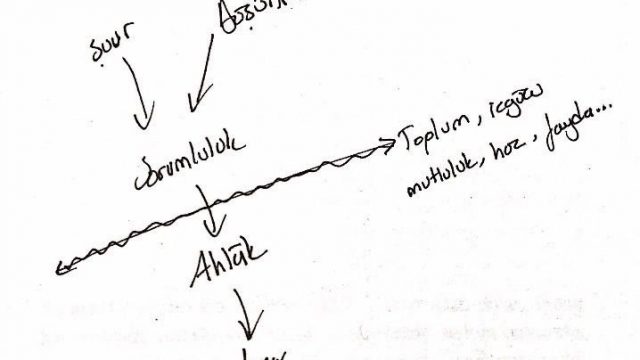 şuur
Sorumluluk
Toplum, içgüdü
mutluluk, haz, fayda...
Ahlâk